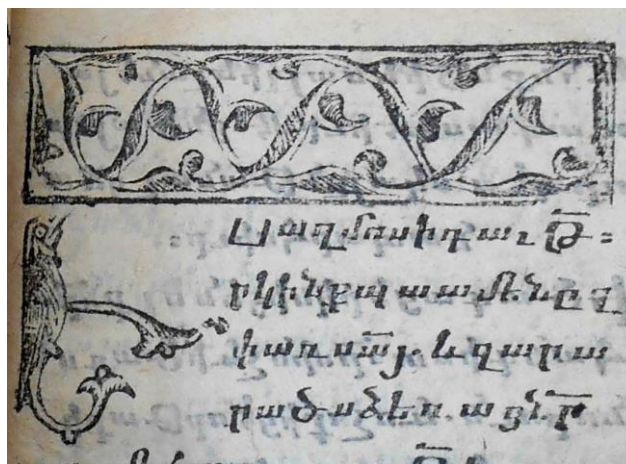 Սաղմոս ի դաւ Թ̅։
րկինք պատմեն զ
փառս ա̅յ. և զարա
րած ձեռաց ն̅ր